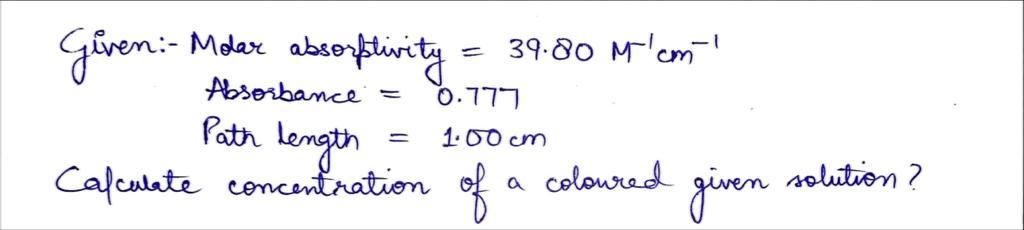 Given:- Molar absorptivity = 39.80 M⁻¹cm⁻¹
Absorbance = 0.777
Path length = 1.00 cm
Calculate concentration of a coloured given solution?